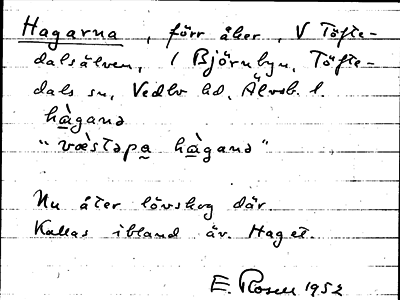 Hagarna, förr åker, V Töfte-
dalsälven, i Björnbyn, Töfte-
dals sn, Vedbo hd, Älvsb. l.
hàganə
"væ̀stəpa hàganə"
Nu åter lövskog där.
Kallas ibland äv. Haget.
E. Rosell 1952